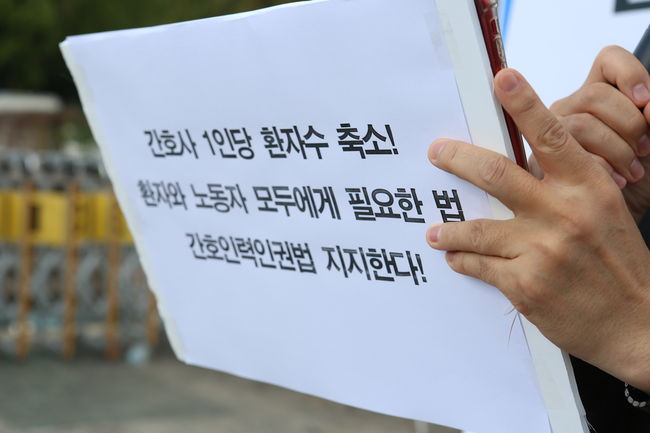 간호사 1인당 환자수 축소!
환자와 노동자 모두에게 필요한 법
간호인력인권법 지지한다!